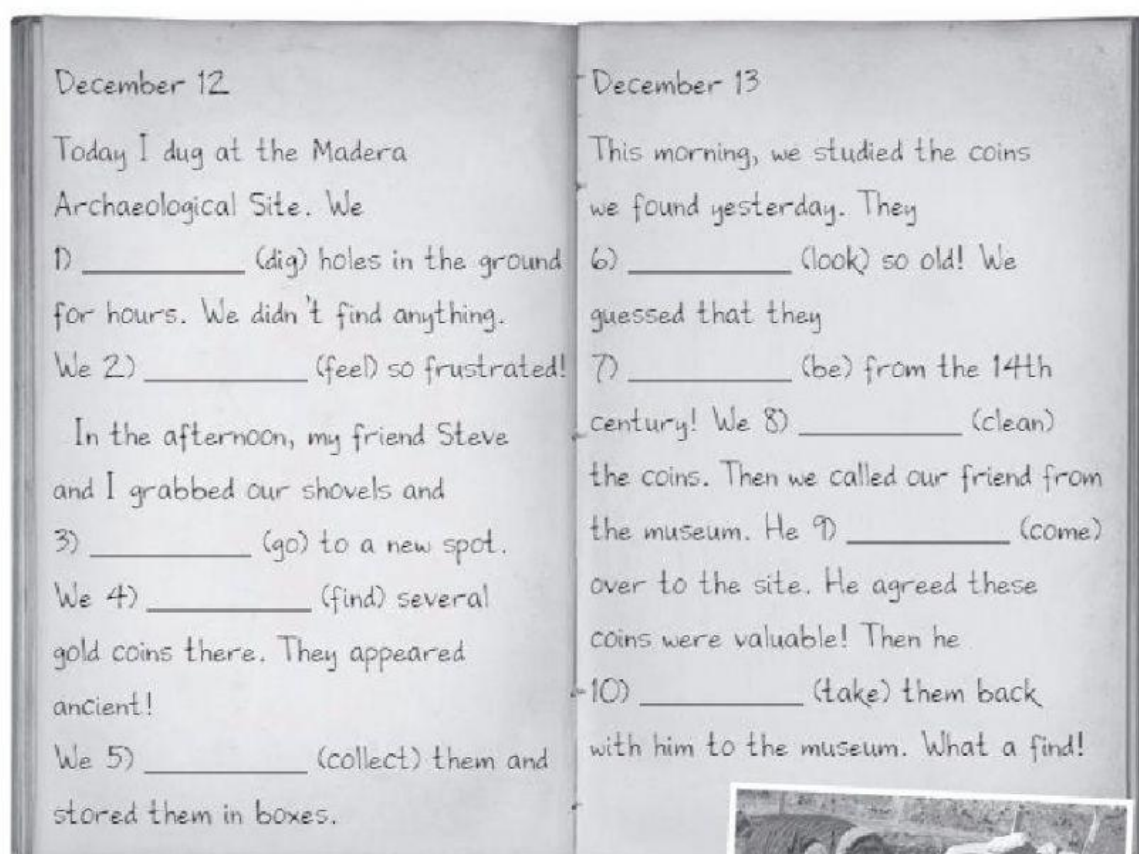 December 12
Today I dug at the Madera
Archaeological Site. We
1) __________ (dig) holes in the ground
for hours. We didn't find anything.
We 2) __________ (feel) so frustrated!
In the afternoon, my friend Steve
and I grabbed our shovels and
3) __________ (go) to a new spot.
We 4) __________ (find) several
gold coins there. They appeared
ancient!
We 5) __________ (collect) them and
stored them in boxes.
December 13
This morning, we studied the coins
we found yesterday. They
6) __________ (look) so old! We
guessed that they
7) __________ (be) from the 14th
century! We 8) __________ (clean)
the coins. Then we called our friend from
the museum. He 9) __________ (come)
over to the site. He agreed these
coins were valuable! Then he
10) __________ (take) them back
with him to the museum. What a find!